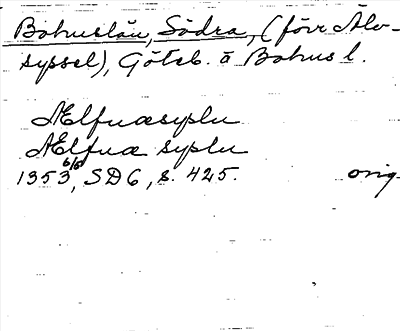 Bohuslän, Södra, (förr Älv-
syssel), Göteb. o Bohus l.
Ælfuæsyslu
Ælfuæ syslu
1353 6/5, SD 6, s. 425. orig